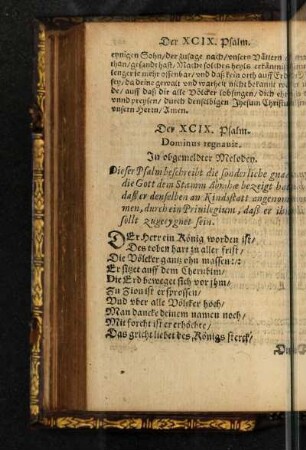 Der XCIX. Psalm.
eynigen Sohn/ der zusage nach/ unsern Vättern
than/ gesandt hast/ Mach solchs heyls erkänntnuß
lenger je mehr offenbar/ und daß kein orth auff Erden
sey/ da deine gewalt und warheit nicht bekannt werde
de/ auff daß dir alle Völcker lobsingen/ dich ehren
unnd preysen/ durch denselbigen Jhesum Christum
unsern Herrn/ Amen.
Der XCIX. Psalm.
Dominus regnavit.
In obgemeldter Melodey.
Dieser Psalm beschreibt die sonderliche gnad
die Gott dem Stamm bezeigt hat
daß er denselben an Kindsstatt angenom
men, durch ein Privilegium, daß er ihm
sollt zugeeygnet sein.
DEr Herr ein König worden ist/
Des toben hart zu aller frist/
Die Völcker gantz ohn massen:/:
Er sitzet auff dem Cherubim/
Die Erd beweget sich vor jhm/
Zu Zion ist ersprossen/
Und uber alle Völcker hoch/
Man dancke deinem namen noch/
Mit forcht ist er erhöchte/
Das gricht liebet des Königs sterck/